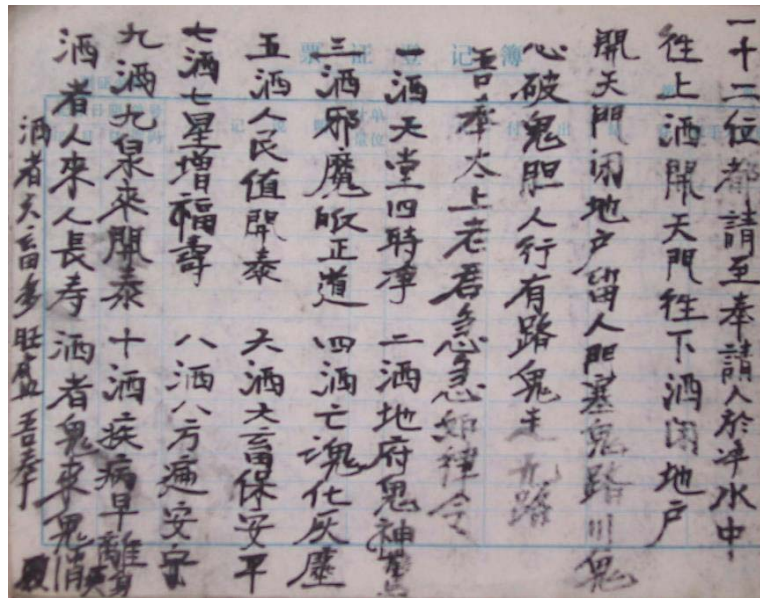 一十二位都請至奉請入於净水中
徃上洒開天門徃下洒闭地户
開天門闭地户留人門塞鬼路川鬼
心破鬼胆人行有路鬼走无路
吾奉太上老君急急如律令
一洒天堂四時淨 二洒地府鬼神
三洒邪魔皈正道 四洒亡魂化灰塵
五洒人民值開泰 六洒六畜保安平
七洒七星增福壽 八洒八方遍安
九洒九泉來開泰 十洒疾病早離身
洒者人來人長寿 洒者鬼來鬼消
洒者六畜多旺盛吾奉
票证登记簿